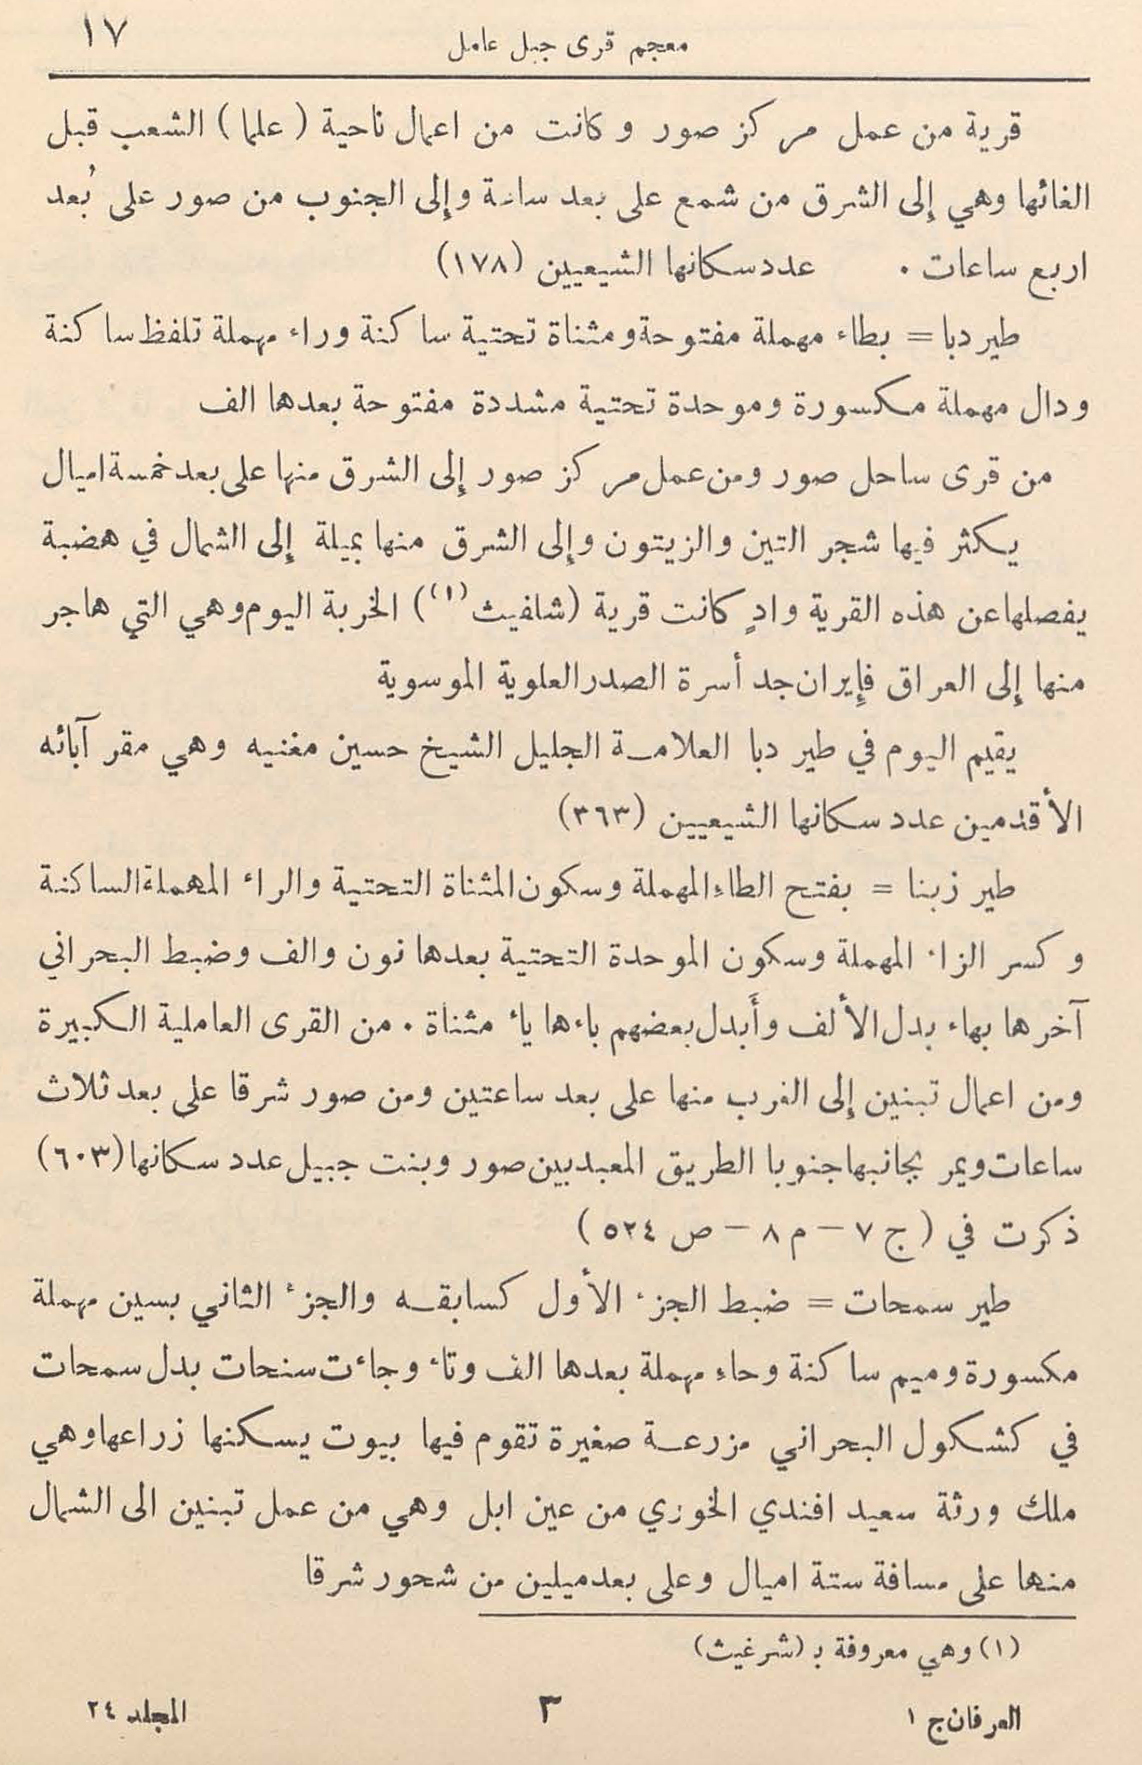 معجم قرى جبل عامل ١٧
قرية من عمل مركز صور وكانت من اعمال ناحية (علما) الشعب قبل
الغائها وهي إلى الشرق من شمع على بعد ساعة وإلى الجنوب من صور على بُعد
اربع ساعات . عدد سكانها الشيعيين (١٧٨)
طير دبا = بطاء مهملة مفتوحة ومثناة تحتية ساكنة وراء مهملة تلفظ ساكنة
ودال مهملة مكسورة وموحدة تحتية مشددة مفتوحة بعدها الف
من قرى ساحل صور ومن عمل مركز صور إلى الشرق منها على بعد خمسة اميال
يكثر فيها شجر التين والزيتون وإلى الشرق منها بميلة إلى الشمال في هضبة
يفصلها عن هذه القرية وادٍ كانت قرية (شلفيث(١)) الخربة اليوم وهي التي هاجر
منها إلى العراق فإيران جد أسرة الصدر العلوية الموسوية
يقيم اليوم في طير دبا العلامة الجليل الشيخ حسين مغنيه وهي مقر آبائه
الأقدمين عدد سكانها الشيعيين (٣٦٣)
طير زبنا = بفتح الطاء المهملة وسكون المثناة التحتية والراء المهملة الساكنة
وكسر الزاء المهملة وسكون الموحدة التحتية بعدها نون والف وضبط البحراني
آخرها بهاء بدل الألف وأَبدل بعضهم باءها ياء مثناة . من القرى العاملية الكبيرة
ومن اعمال تبنين إلى الغرب منها على بعد ساعتين ومن صور شرقا على بعد ثلاث
ساعات ويمر بجانبها جنوبا الطريق المعبد بين صور وبنت جبيل عدد سكانها (٦٠٣)
ذكرت في (ج ٧ – م ٨ – ص ٥٢٤)
طير سمحات = ضبط الجزء الأول كسابقه والجزء الثاني بسين مهملة
مكسورة وميم ساكنة وحاء مهملة بعدها الف وتاء وجاءت سنحات بدل سمحات
في كشكول البحراني مزرعة صغيرة تقوم فيها بيوت يسكنها زراعها وهي
ملك ورثة سعيد افندي الخوري من عين ابل وهي من عمل تبنين الى الشمال
منها على مسافة ستة اميال وعلى بعد ميلين من شحور شرقا
(١) وهي معروفة بـ (شرغيث)
العرفان ج ١ ٣ المجلد ٢٤